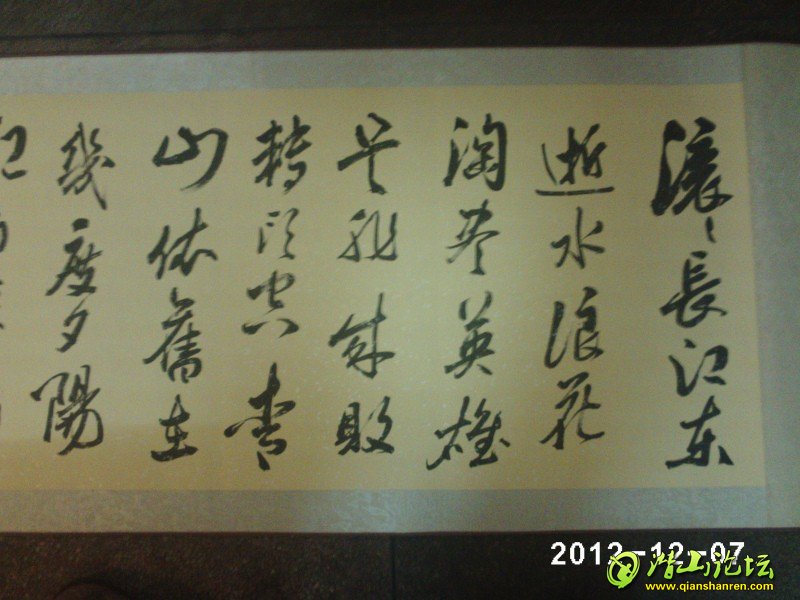 滚々長江东
逝水浪花
淘尽英雄
是非成敗
轉頭空青
山依舊在
幾度夕陽
2012-12-07
潜山论坛
www.qianshanren.com